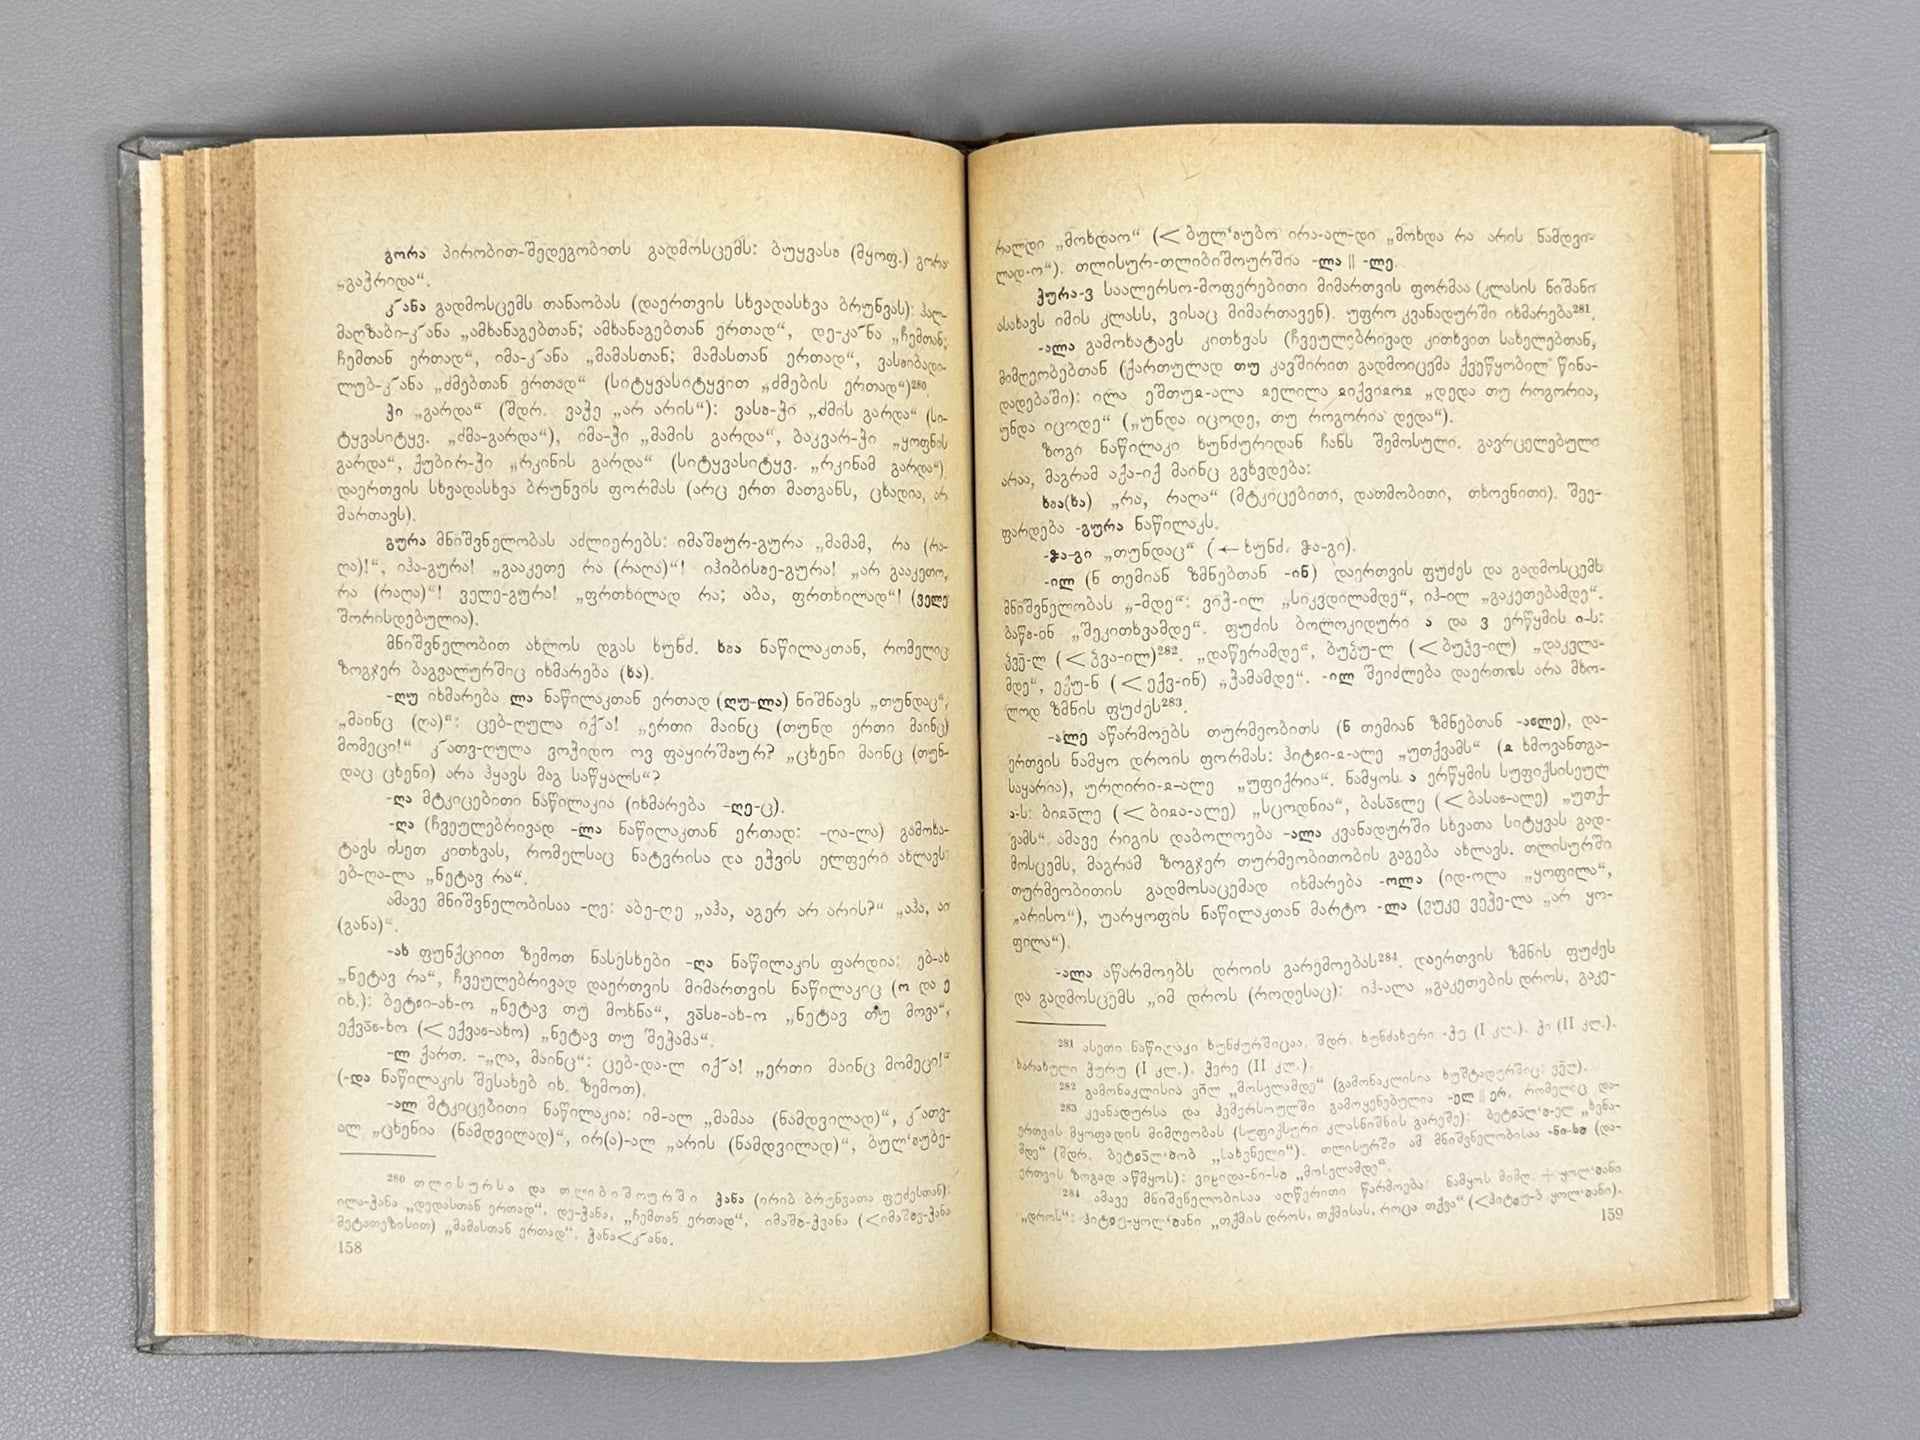 გორა პირობით-შედეგობითს გადმოსცემს: (მყოფ.) გორა
„გაჭრიდა“.
გადმოსცემს თანაობას (დაერთვის სხვადასხვა ბრუნვას):
„ამხანაგებთან; ამხანაგებთან ერთად“, „ჩემთან;
ჩემთან ერთად“, „მამასთან; მამასთან ერთად“,
„ძმებთან ერთად“ (სიტყვასიტყვით „ძმების ერთად“)²⁸⁰.
ჭი „გარდა“ (შდრ. ვაჭე „არ არის“): „ძმის გარდა“ (სი-
ტყვასიტყვ. „ძმა-გარდა“), იმა-ჭი „მამის გარდა“, ბაკვარ-ჭი „ყოფნის
გარდა“, ქუბირ-ჭი „რკინის გარდა“ (სიტყვასიტყვ. „რკინამ გარდა“)
დაერთვის სხვადასხვა ბრუნვის ფორმას (არც ერთ მათგანს, ცხადია, არ
მართავს).
გურა მნიშვნელობას აძლიერებს: „მამამ, რა (რა-
ღა)!“, იჰა-გურა! „გააკეთე რა (რაღა)“! „არ გააკეთო,
რა (რაღა)“! ველე-გურა! „ფრთხილად რა; აბა, ფრთხილად“! (ველე
შორისდებულია).
მნიშვნელობით ახლოს დგას ხუნძ. ნაწილაკთან, რომელიც
ზოგჯერ ბაგვალურშიც იხმარება (ხა).
-ღუ იხმარება ლა ნაწილაკთან ერთად (ღუ-ლა) ნიშნავს „თუნდაც“,
„მაინც (ღა)“: ცებ-ღულა „ერთი მაინც (თუნდ ერთი მაინც)
მომეცი!“ ვოჭიდო ოვ „ცხენი მაინც (თუნ-
დაც ცხენი) არა ჰყავს მაგ საწყალს“?
-ღა მტკიცებითი ნაწილაკია (იხმარება -ღე-ც).
-ღა (ჩვეულებრივად -ლა ნაწილაკთან ერთად: -ღა-ლა) გამოხა-
ტავს ისეთ კითხვას, რომელსაც ნატვრისა და ეჭვის ელფერი ახლავს:
ებ-ღა-ლა „ნეტავ რა“.
ამავე მნიშვნელობისაა -ღე: აბე-ღე „აჰა, აგერ არ არის?“ „აჰა, აი
(განა)“.
-ახ ფუნქციით ზემოთ ნასესხები -ღა ნაწილაკის ფარდია: ებ-ახ
„ნეტავ რა“, ჩვეულებრივად დაერთვის მიმართვის ნაწილაკიც (ო და ე
იხ.): „ნეტავ თუ მოხნა“, „ნეტავ თუ მოვა“,
„ნეტავ თუ შეჭამა“.
-ლ ქართ. -„ღა, მაინც“: ცებ-და-ლ „ერთი მაინც მომეცი!“
(-და ნაწილაკის შესახებ იხ. ზემოთ).
-ალ მტკიცებითი ნაწილაკია: იმ-ალ „მამაა (ნამდვილად)“,
ალ „ცხენია (ნამდვილად)“, ირ(ა)-ალ „არის (ნამდვილად)“,
²⁸⁰ თლისურსა და თლიბიშოურში ჭანა (ირიბ ბრუნვათა ფუძესთან):
ილა-ჭანა „დედასთან ერთად“, დე-ჭანა, „ჩემთან ერთად“,
მეტათეზისით) „მამასთან ერთად“.
158
რალდი „მოხდაო“ ირა-ალ-დი „მოხდა რა არის ნამდვი-
ლად-ო“). თლისურ-თლიბიშოურშია -ლა || -ლე.
ჭურა-ვ საალერსო-მოფერებითი მიმართვის ფორმაა (კლასის ნიშანი
ასახავს იმის კლასს, ვისაც მიმართავენ). უფრო კვანადურში იხმარება²⁸¹.
-ალა გამოხატავს კითხვას (ჩვეულებრივად კითხვით სახელებთან,
მიმღეობებთან (ქართულად თუ კავშირით გადმოიცემა ქვეწყობილ წინა-
დადებაში): ილა „დედა თუ როგორია,
უნდა იცოდე“ („უნდა იცოდე, თუ როგორია დედა“).
ზოგი ნაწილაკი ხუნძურიდან ჩანს შემოსული. გავრცელებული
არაა, მაგრამ აქა-იქ მაინც გვხვდება:
„რა, რაღა“ (მტკიცებითი, დათმობითი, თხოვნითი). შეე-
ფარდება -გურა ნაწილაკს.
„თუნდაც“
-ილ (ნ თემიან ზმნებთან -ინ) დაერთვის ფუძეს და გადმოსცემს
მნიშვნელობას „-მდე“: „სიკვდილამდე“, იჰ-ილ „გაკეთებამდე“.
„შეკითხვამდე“. ფუძის ბოლოკიდური ა და ვ ერწყმის ი-ს:
„დაწერამდე“, „დაკვლა-
მდე“, „ჭამამდე“. -ილ შეიძლება დაერთოს არა მხო-
ლოდ ზმნის ფუძეს²⁸³.
-ალე აწარმოებს თურმეობითს (ნ თემიან ზმნებთან და-
ერთვის ნამყო დროის ფორმას: „უთქვამს“ ხმოვანთგა-
საყარია), „უფიქრია“. ნამყოს ა ერწყმის სუფიქსისეულ
ა-ს: „სცოდნია“, „უთქ-
ვამს“. ამავე რიგის დაბოლოება -ალა კვანადურში სხვათა სიტყვას გად-
მოსცემს, მაგრამ ზოგჯერ თურმეობითობის გაგება ახლავს. თლისურში
თურმეობითის გადმოსაცემად იხმარება -ოლა (იდ-ოლა „ყოფილა“,
„არისო“), უარყოფის ნაწილაკთან მარტო -ლა (ვუკე ვეჭე-ლა „არ ყო-
ფილა“).
-ალა აწარმოებს დროის გარემოებას²⁸⁴. დაერთვის ზმნის ფუძეს
და გადმოსცემს „იმ დროს (როდესაც): იჰ-ალა „გაკეთების დროს, გაკე-
²⁸¹ ასეთი ნაწილაკი ხუნძურშიცაა. შდრ. -ჭე (I კლ.), ჭი (II კლ.).
ჭურუ (I კლ.), ჭერე (II კლ.).
²⁸² გამონაკლისია „მოსვლამდე“ (გამონაკლისია ხუშტადურშიც:
²⁸³ კვანადურსა და ჰემერსოულში გამოყენებულია -ელ || ერ, რომელიც და-
ერთვის მყოფადის მიმღეობას (სუფიქსური კლასნიშნის გარეშე): „ხვნა-
მდე“ (შდრ. „სახვნელი“). თლისურში ამ მნიშვნელობისაა (და-
ერთვის ზოგად აწმყოს): „მოსვლამდე“.
²⁸⁴ ამავე მნიშვნელობისაა აღწერითი წარმოება: ნამყოს მიმღ. +
„დროს“: „თქმის დროს, თქმისას, როცა თქვა“
159